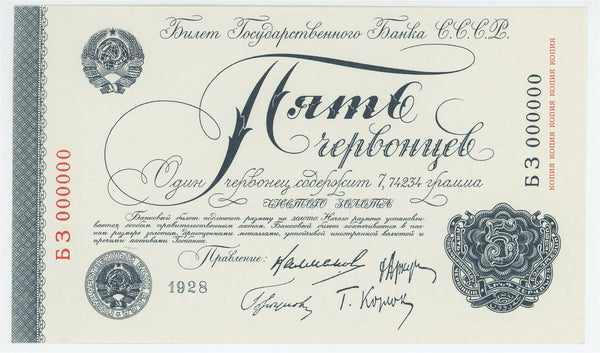 Билет Государственного Банка С.С.С.Р.
Пять
червонцев
Один червонец содержит 7,74234 грамма
чистого золота
Банковый билет подлежит размену на золото. Начало размена устанавли-
вается особым правительственным актом. Банковый билет обеспечивается в пол-
ном размере золотом, драгоценными металлами, устойчивой иностранной валютой и
прочими активами Госбанка.
Правление:
1928
5
БЗ 000000
БЗ 000000
КОПИЯ КОПИЯ КОПИЯ КОПИЯ КОПИЯ